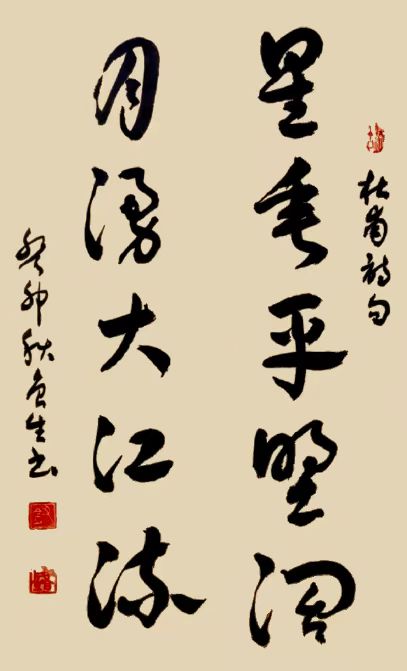 杜甫詩句
星垂平野濶
月湧大江流
癸卯秋生书